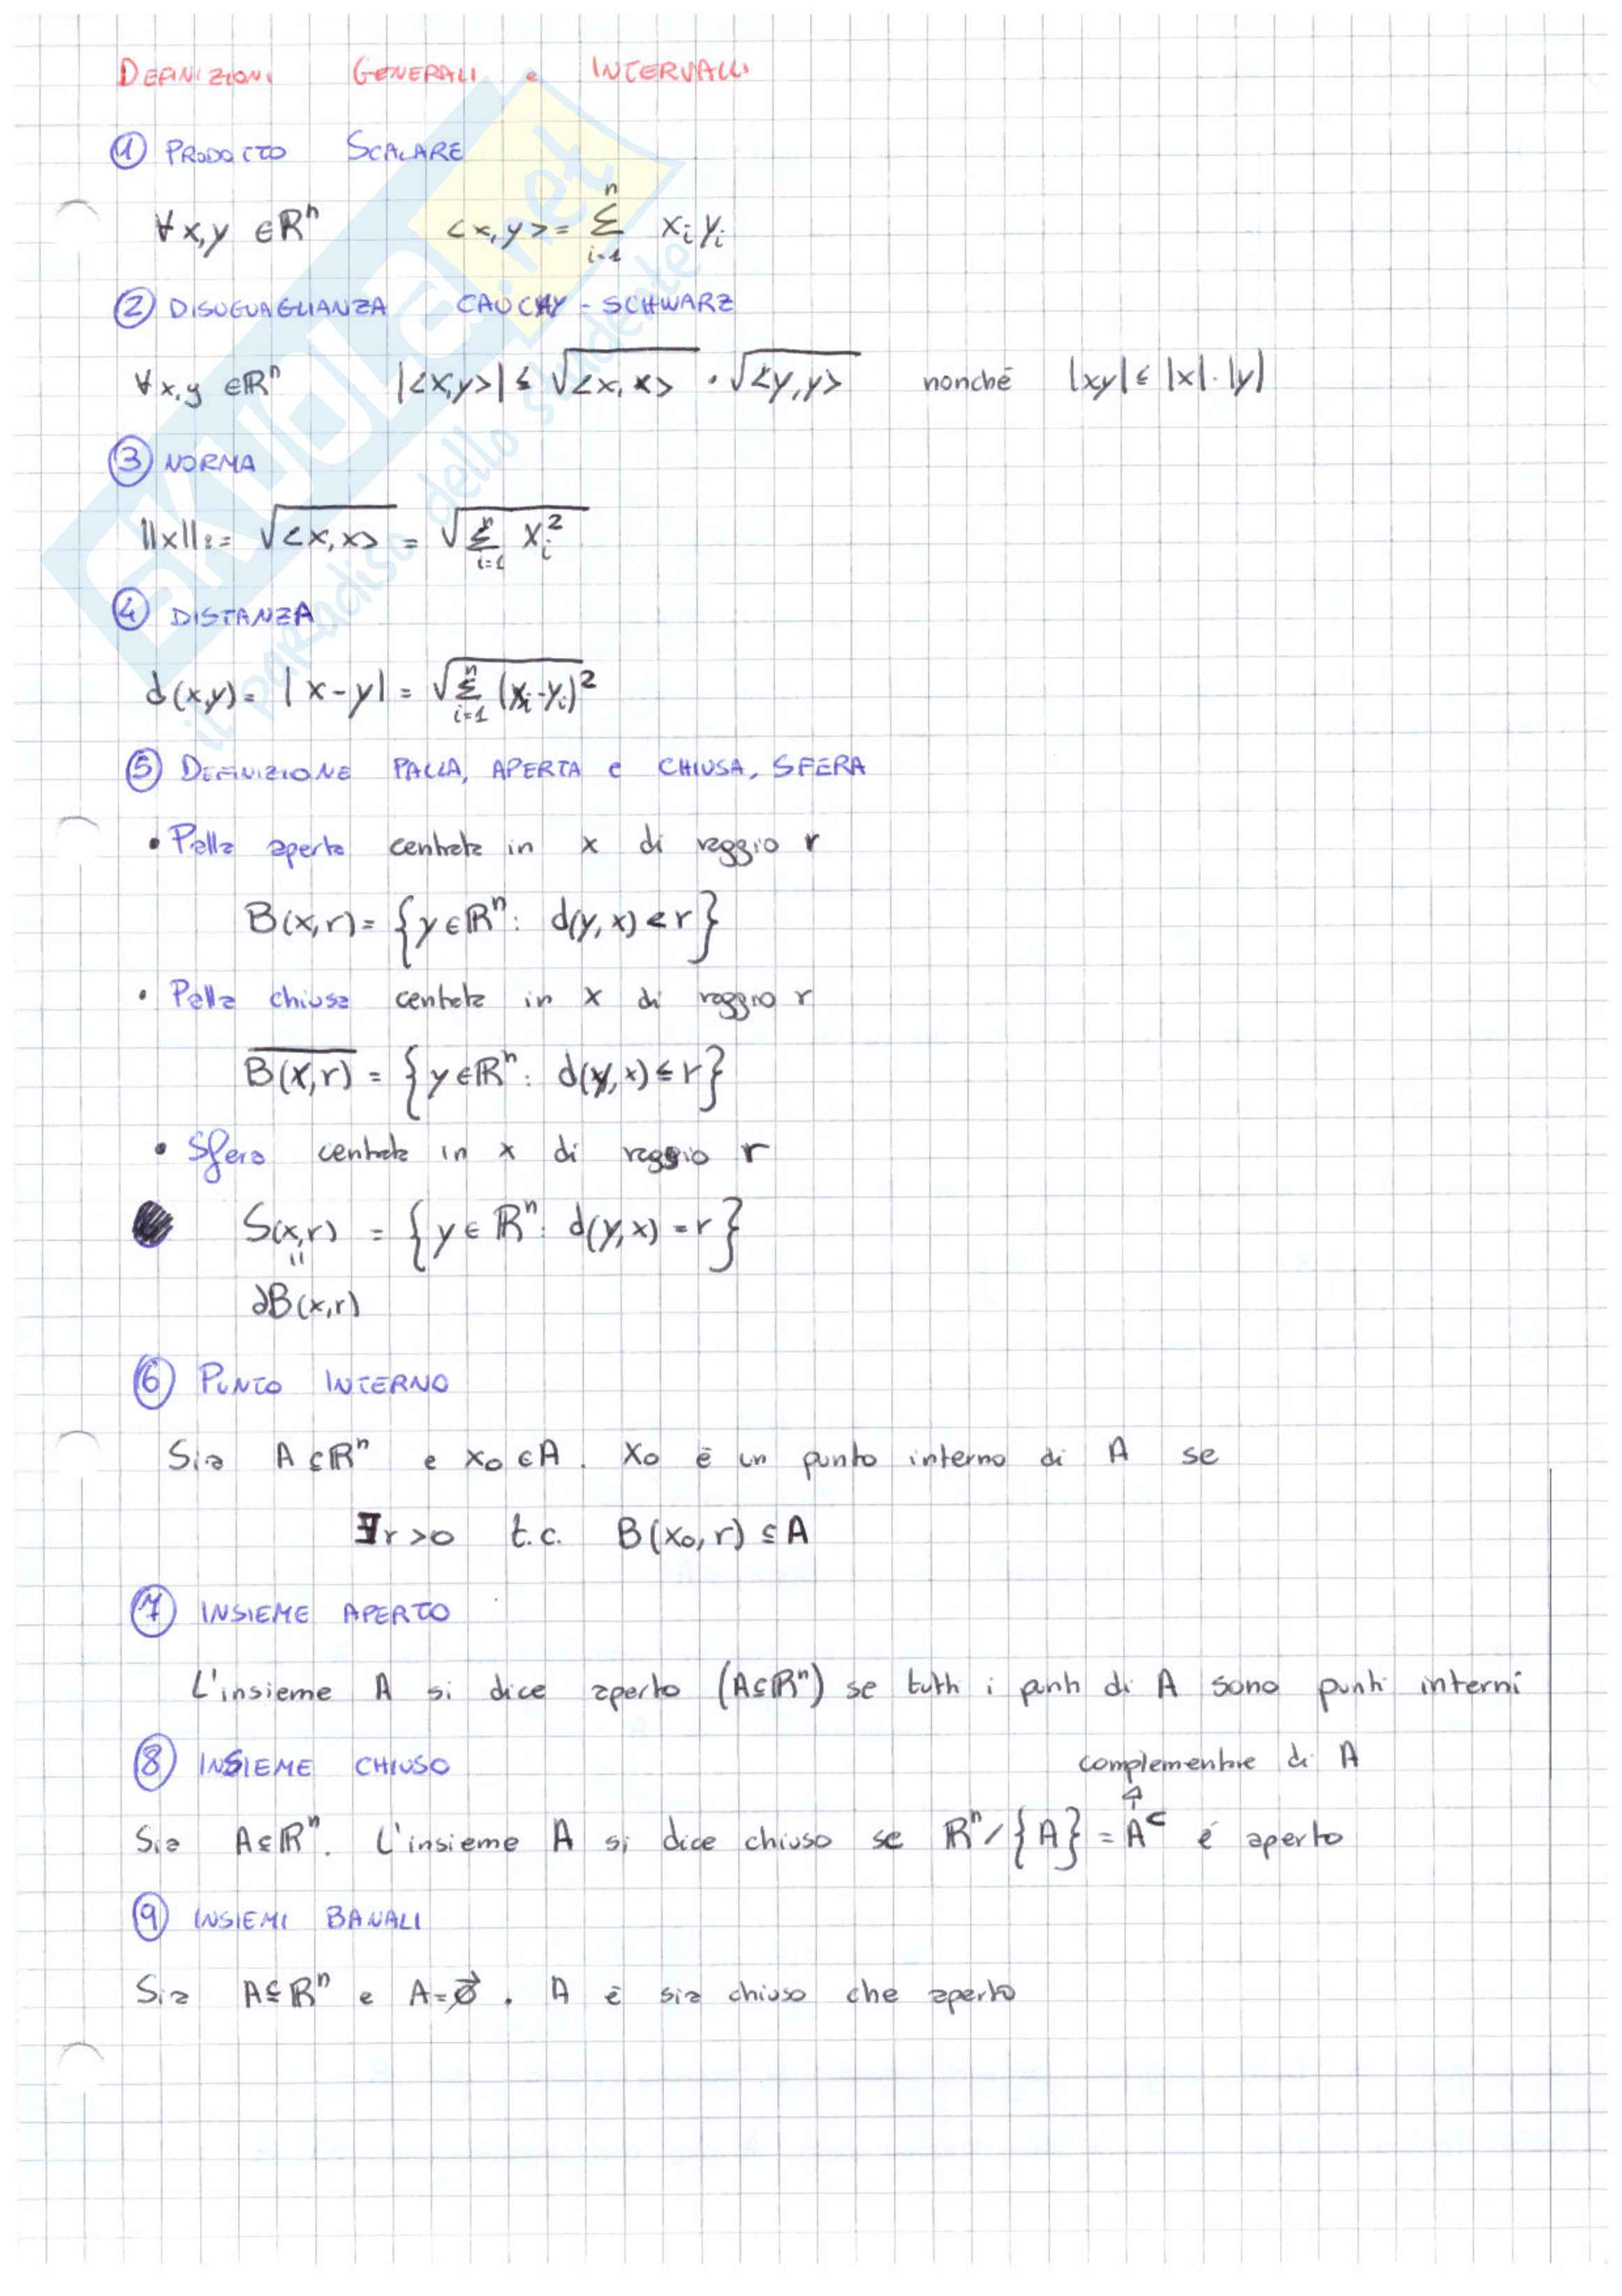 DEFINIZIONI GENERALI e INTERVALLI
① PRODOTTO SCALARE
∀ x,y ∈ ℝⁿ <x,y> = Σ_{i=1}^{n} xᵢ yᵢ
② DISUGUAGLIANZA CAUCHY - SCHWARZ
∀ x,y ∈ ℝⁿ |<x,y>| ≤ √<x,x> · √<y,y> nonché |xy| ≤ |x|·|y|
③ NORMA
||x|| := √<x,x> = √(Σ_{i=1}^{n} xᵢ²)
④ DISTANZA
d(x,y) = |x-y| = √(Σ_{i=1}^{n} (xᵢ-yᵢ)²)
⑤ DEFINIZIONE PALLA, APERTA e CHIUSA, SFERA
• Palla aperta centrata in x di raggio r
B(x,r) = {y ∈ ℝⁿ: d(y,x) < r}
• Palla chiusa centrata in x di raggio r
\overline{B(x,r)} = {y ∈ ℝⁿ: d(y,x) ≤ r}
• Sfera centrata in x di raggio r
S(x,r) = {y ∈ ℝⁿ: d(y,x) = r}
||
∂B(x,r)
⑥ PUNTO INTERNO
Sia A ⊆ ℝⁿ e x₀ ∈ A. x₀ è un punto interno di A se
∃ r > 0 t.c. B(x₀, r) ⊆ A
⑦ INSIEME APERTO
L'insieme A si dice aperto (A ⊆ ℝⁿ) se tutti i punti di A sono punti interni
⑧ INSIEME CHIUSO
complementare di A
↑
Sia A ⊆ ℝⁿ. L'insieme A si dice chiuso se ℝⁿ / {A} = Aᶜ é aperto
⑨ INSIEMI BANALI
Sia A ⊆ ℝⁿ e A = \vec{∅}. A è sia chiuso che aperto
SKUOLA.net
il paradiso dello studente